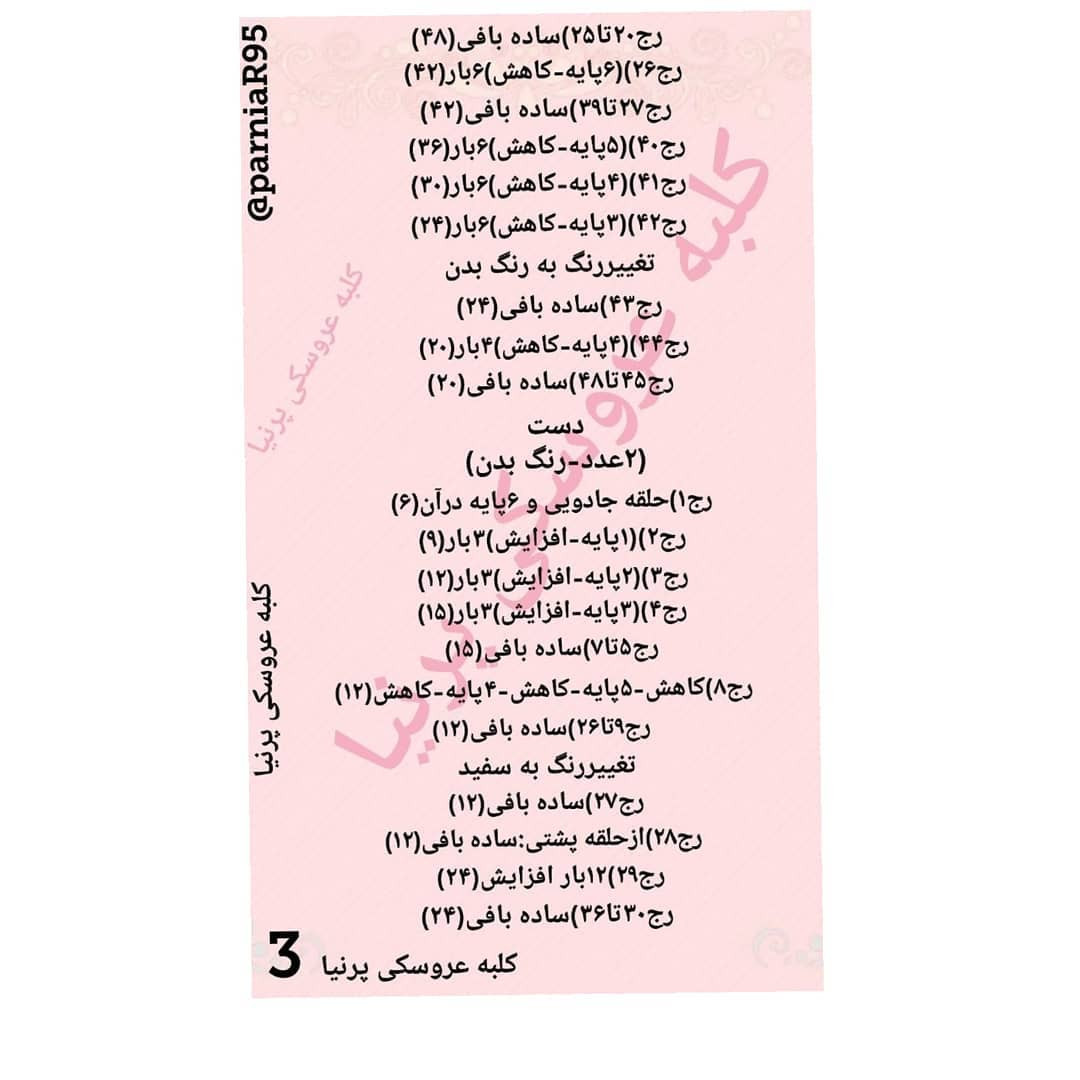 رج۲۰تا۲۵)ساده بافی(۴۸)
رج۲۶)(۶پایه-کاهش)۶بار(۴۲)
رج۲۷تا۳۹)ساده بافی(۴۲)
رج۴۰)(۵پایه-کاهش)۶بار(۳۶)
رج۴۱)(۴پایه-کاهش)۶بار(۳۰)
رج۴۲)(۳پایه-کاهش)۶بار(۲۴)
تغییررنگ به رنگ بدن
رج۴۳)ساده بافی(۲۴)
رج۴۴)(۴پایه-کاهش)۴بار(۲۰)
رج۴۵تا۴۸)ساده بافی(۲۰)
دست
(۲عدد-رنگ بدن)
رج۱)حلقه جادویی و ۶پایه درآن(۶)
رج۲)(۱پایه-افزایش)۳بار(۹)
رج۳)(۲پایه-افزایش)۳بار(۱۲)
رج۴)(۳پایه-افزایش)۳بار(۱۵)
رج۵تا۷)ساده بافی(۱۵)
رج۸)کاهش-۵پایه-کاهش-۴پایه-کاهش(۱۲)
رج۹تا۲۶)ساده بافی(۱۲)
تغییررنگ به سفید
رج۲۷)ساده بافی(۱۲)
رج۲۸)ازحلقه پشتی:ساده بافی(۱۲)
رج۲۹)۱۲بار افزایش(۲۴)
رج۳۰تا۳۶)ساده بافی(۲۴)
کلبه عروسکی پرنیا
3
@parniaR95
کلبه عروسکی پرنیا
کلبه عروسکی پرنیا
کلبه عروسکی پرنیا